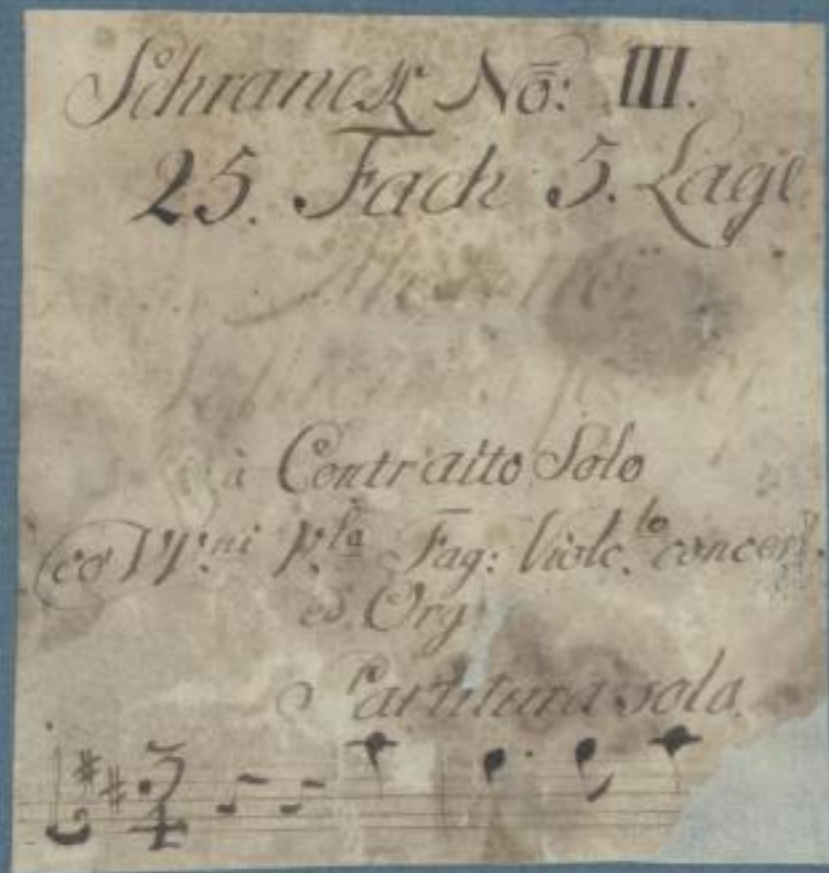 Schranck No: III.
25. Fach 5. Lage
à Contralto Solo
co VV.ni V.la Fag: Violc.lo concert.
ed Org
Partitura sola.